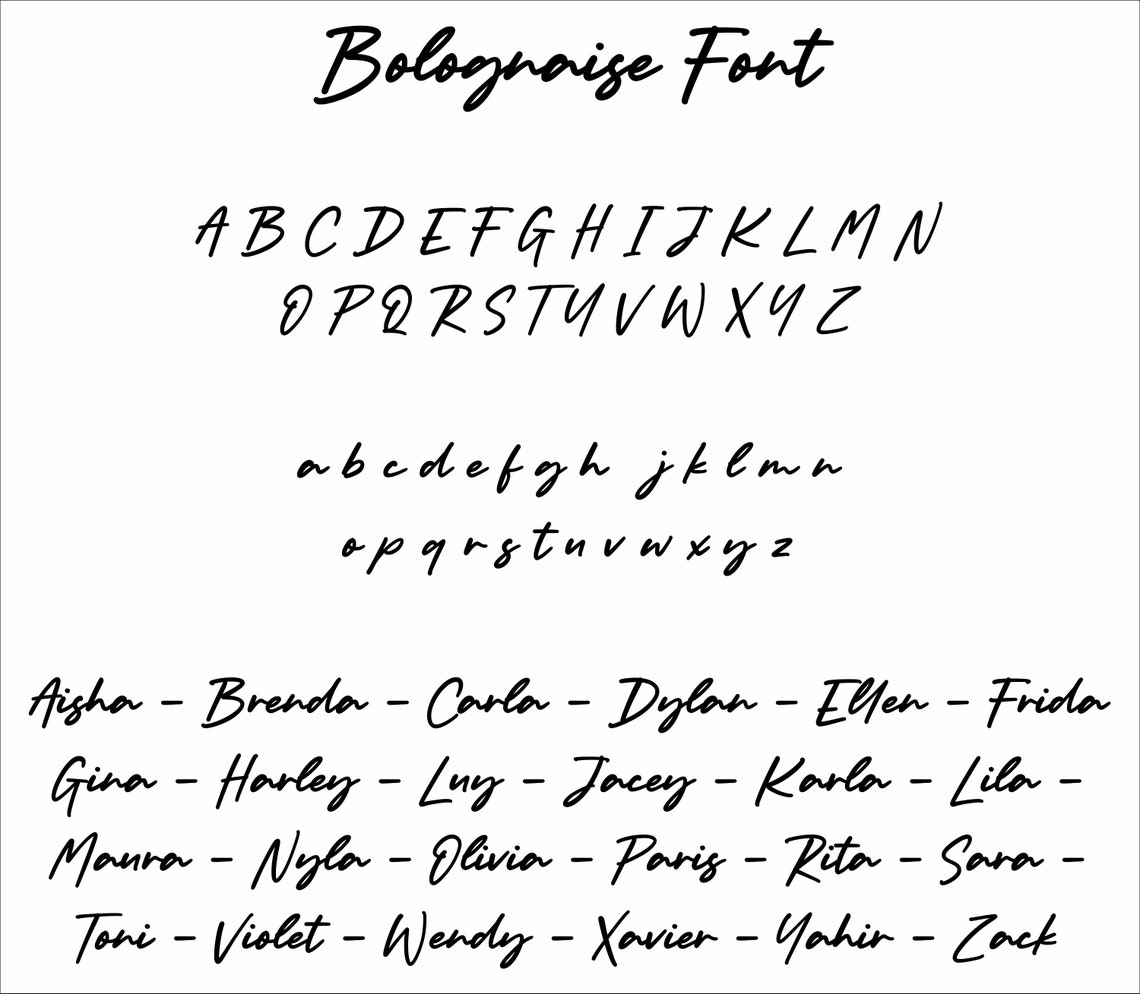 Bolognaise Font
A B C D E F G H I J K L M N
O P Q R S T U V W X Y Z
a b c d e f g h j k l m n
o p q r s t u v w x y z
Aisha – Brenda – Carla – Dylan – Ellen – Frida
Gina – Harley – Luy – Jacey – Karla – Lila –
Maura – Nyla – Olivia – Paris – Rita – Sara –
Toni – Violet – Wendy – Xavier – Yahir – Zack